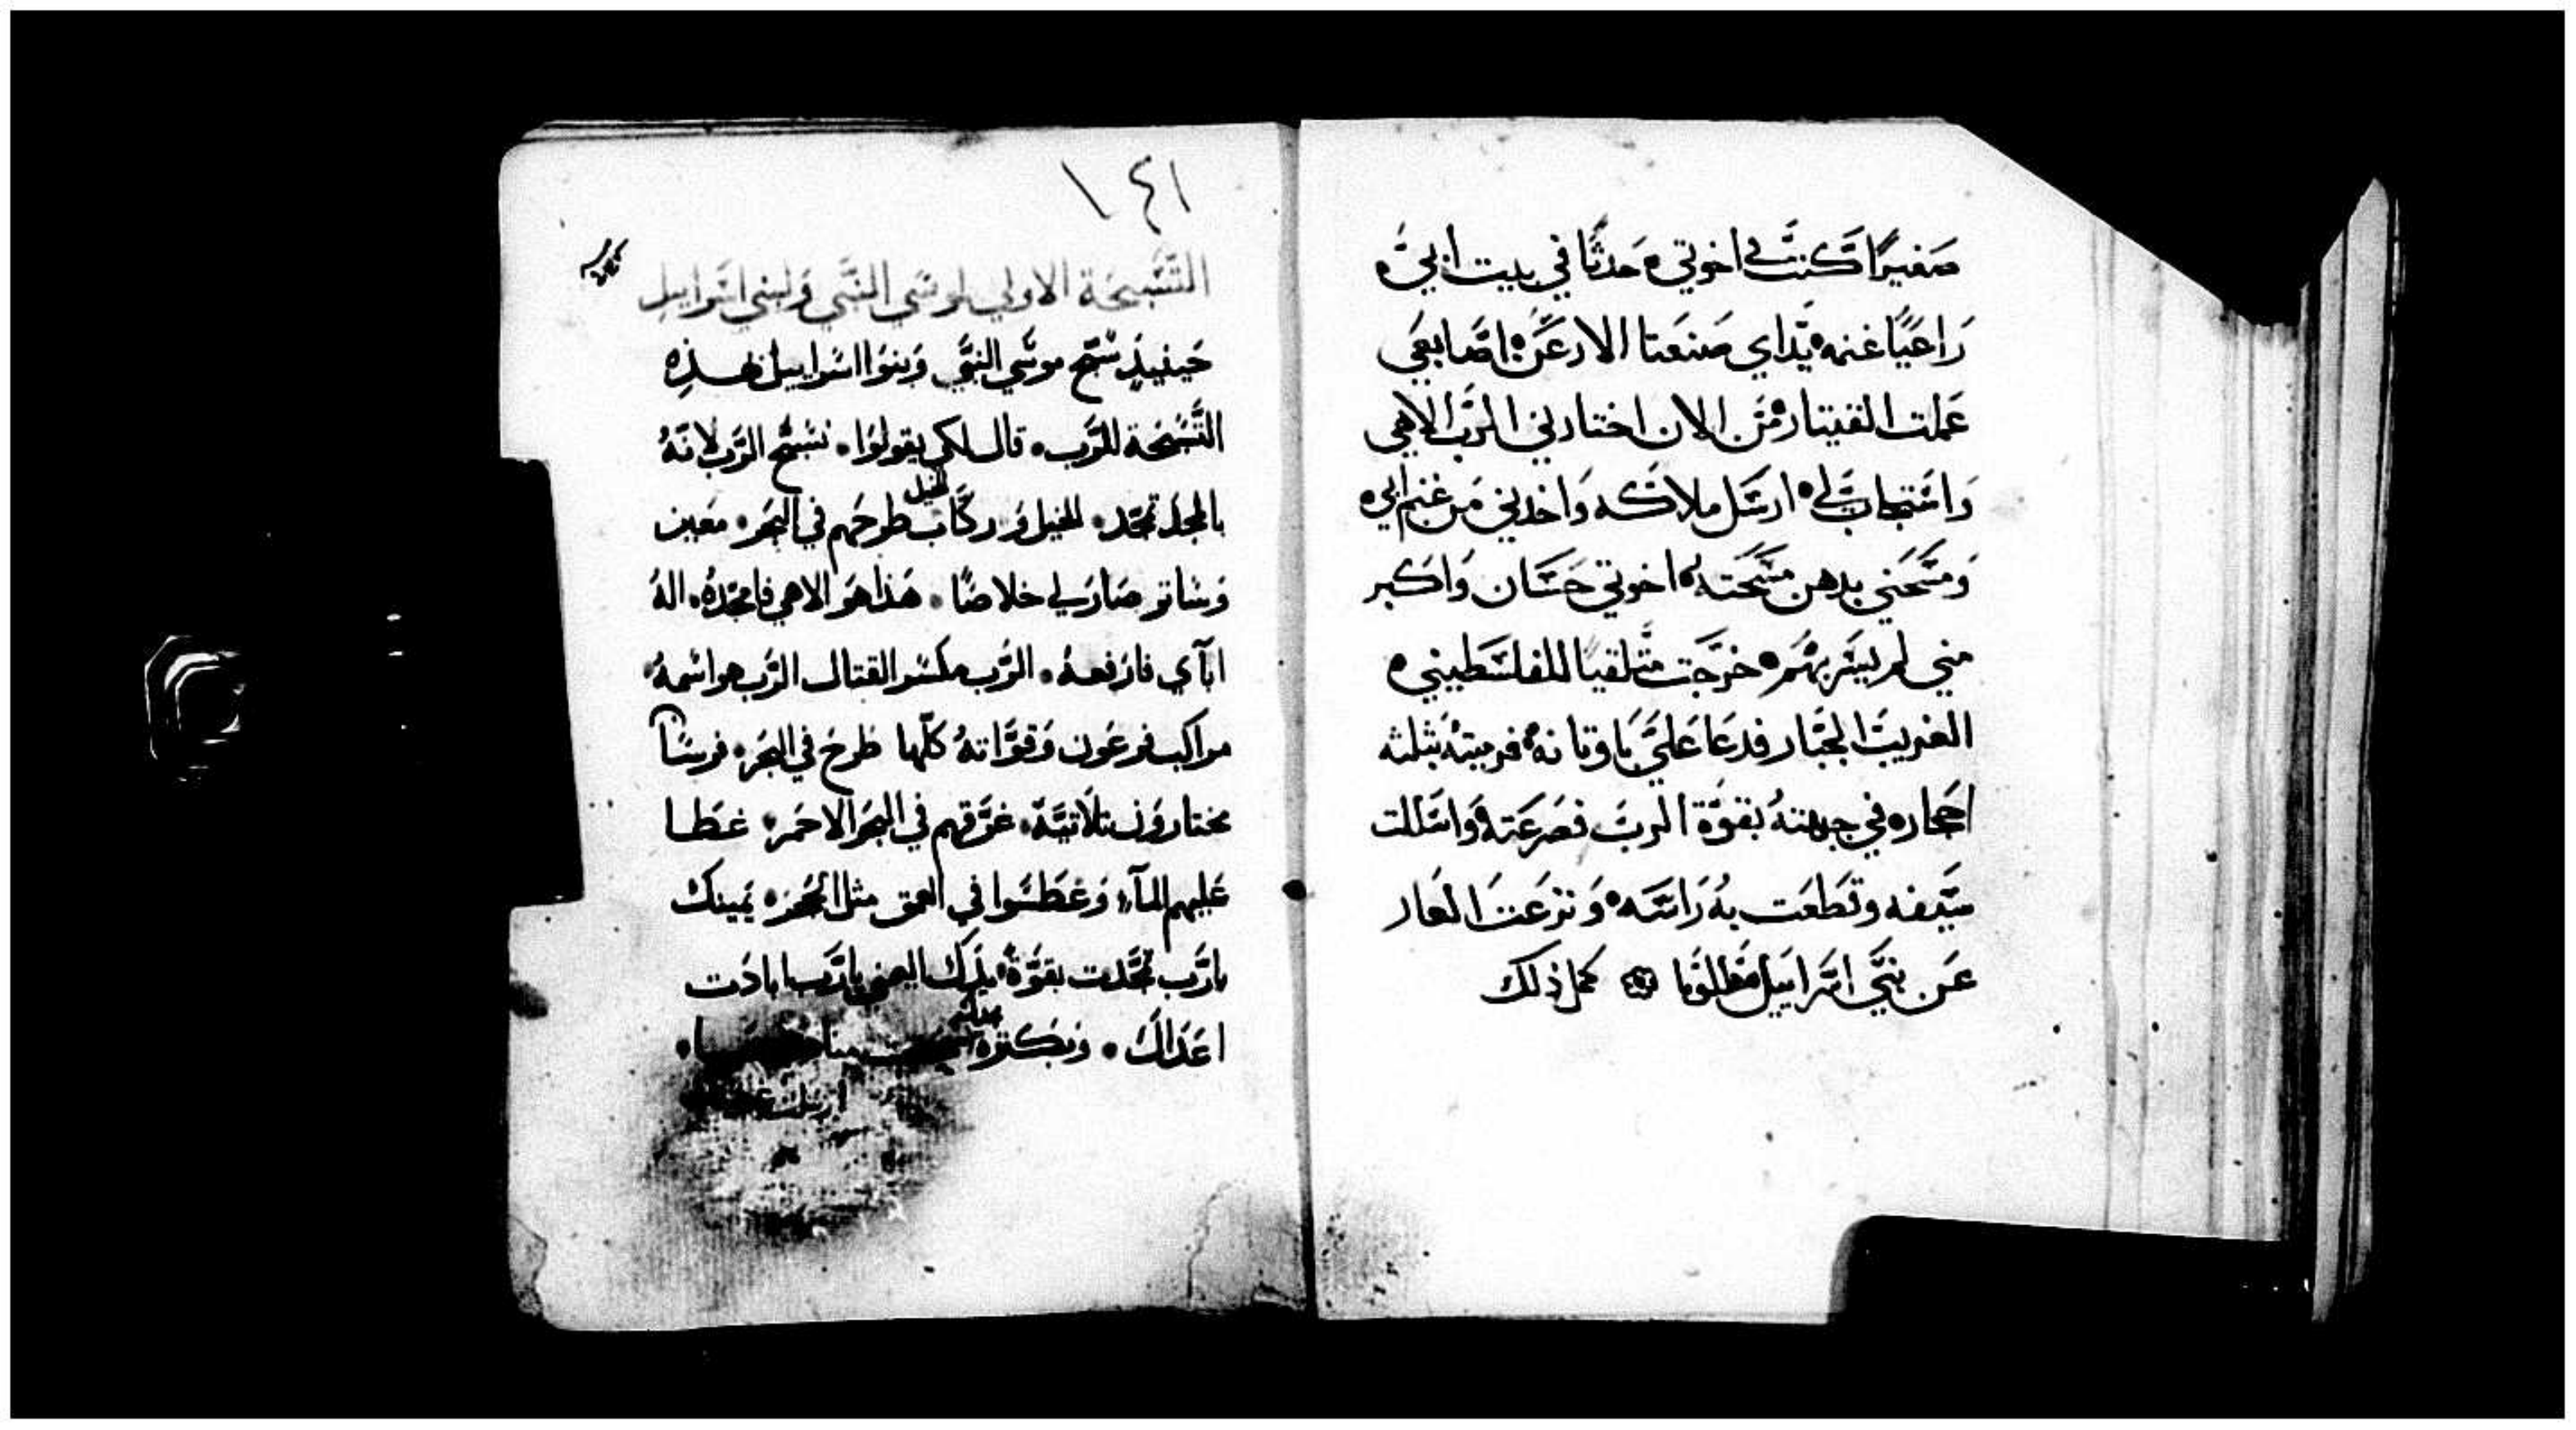 صغيرًا كنت في اخوتي ۰ حدثًا في بيت ابي ۰
راعيًا غنمه ۰ يداي صنعتا الارغن ۰ اصابعي
عملت القيتار ۰ من الان اختارني الرب الاهي
واستجاب لي ۰ ارسل ملاكه واخدني من غنم ابي ۰
ومسحني بدهن مسحته ۰ اخوتي حسان واكبر
مني لم يسر بهم ۰ خرجت متلقيًا للفلسطيني ۰
الغريب الجبار فدعا علي باوتانه ۰ فرميته بثلثه
احجاره في جبهته بقوة الرب فصرعته ۰ واستللت
سيفه وقطعت به راسه ۰ ونزعت العار
عن بني اسراييل مظلوما كمل ذلك
١٤١
التسبحة الاولي لموسي النبي ولبني اسراييل
حينيذ سبح موسي النبي وبنوا اسراييل بهذه
التسبحة للرب ۰ قال لكي يقولوا ۰ نسبح الرب لانه
بالمجد تمجد ۰ الخيل وركاب الخيل طرحهم في البحر ۰ معين
وساتر صار لي خلاصًا ۰ هذا هو الاهي فامجده ۰ اله
ابآي فارفعه ۰ الرب مكسر القتال الرب هو اسمه ۰
مراكب فرعون وقواته كلها طرح في البحر ۰ فرسانًا
مختارون تلاتية ۰ غرقهم في البحر الاحمر ۰ غطا
عليهم المآء ۰ وغطسوا في العمق مثل الحجر ۰ يمينك
يارب تمجدت بقوة ۰ يدك اليمني يارب ابادت
اعداك ۰ وبكترة